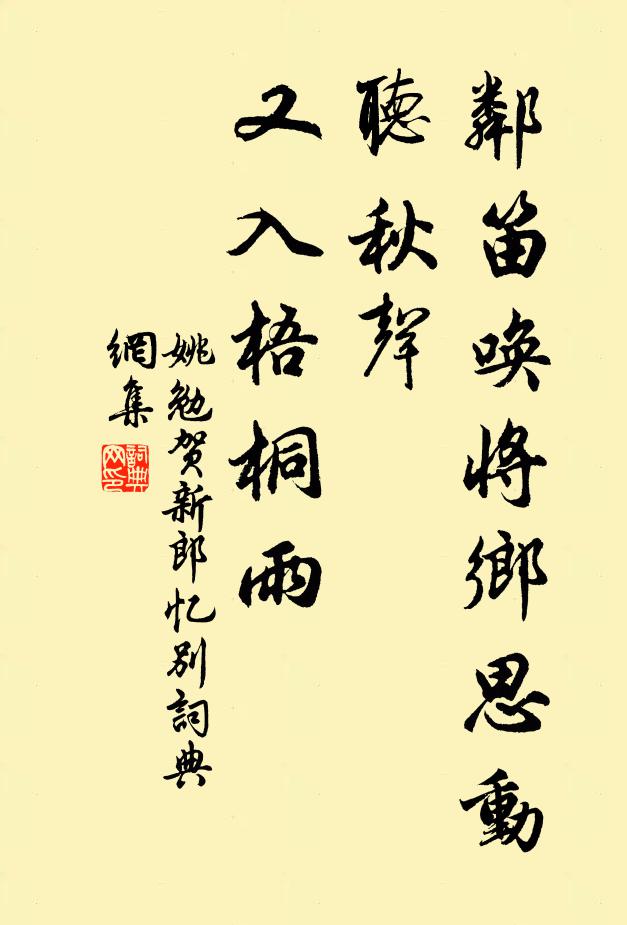 鄰笛喚將鄉思動
聽秋聲
又入梧桐雨
姚勉賀新郎忆別詞典
網集
詞典
网印